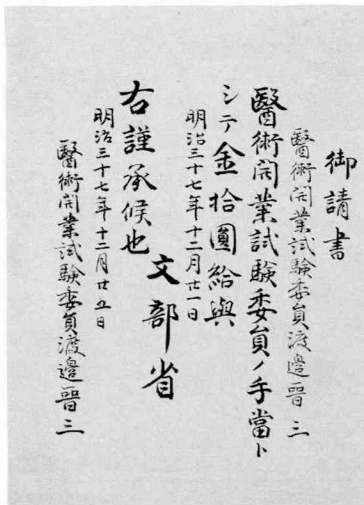 御請書
醫術開業試験委員渡邉晋三
醫術開業試験委員ノ手當ト
シテ金拾圓給與
明治三十七年十二月廿一日
文部省
右謹承候也
明治三十七年十二月廿五日
醫術開業試験委員渡邉晋三